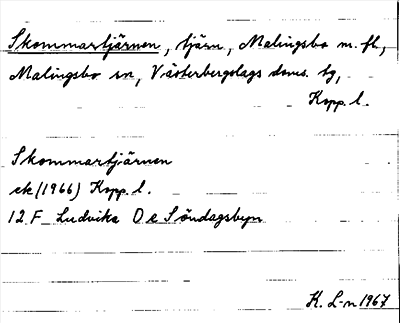 Skommartjärnen, tjärn, Malingsbo m. fl.,
Malingsbo sn, Västerbergslags doms. tg,
Kopp. l.
Skommartjärnen
ek (1966) Kopp. l.
12 F Ludvika O e Söndagsbyn
K. L-n 1967